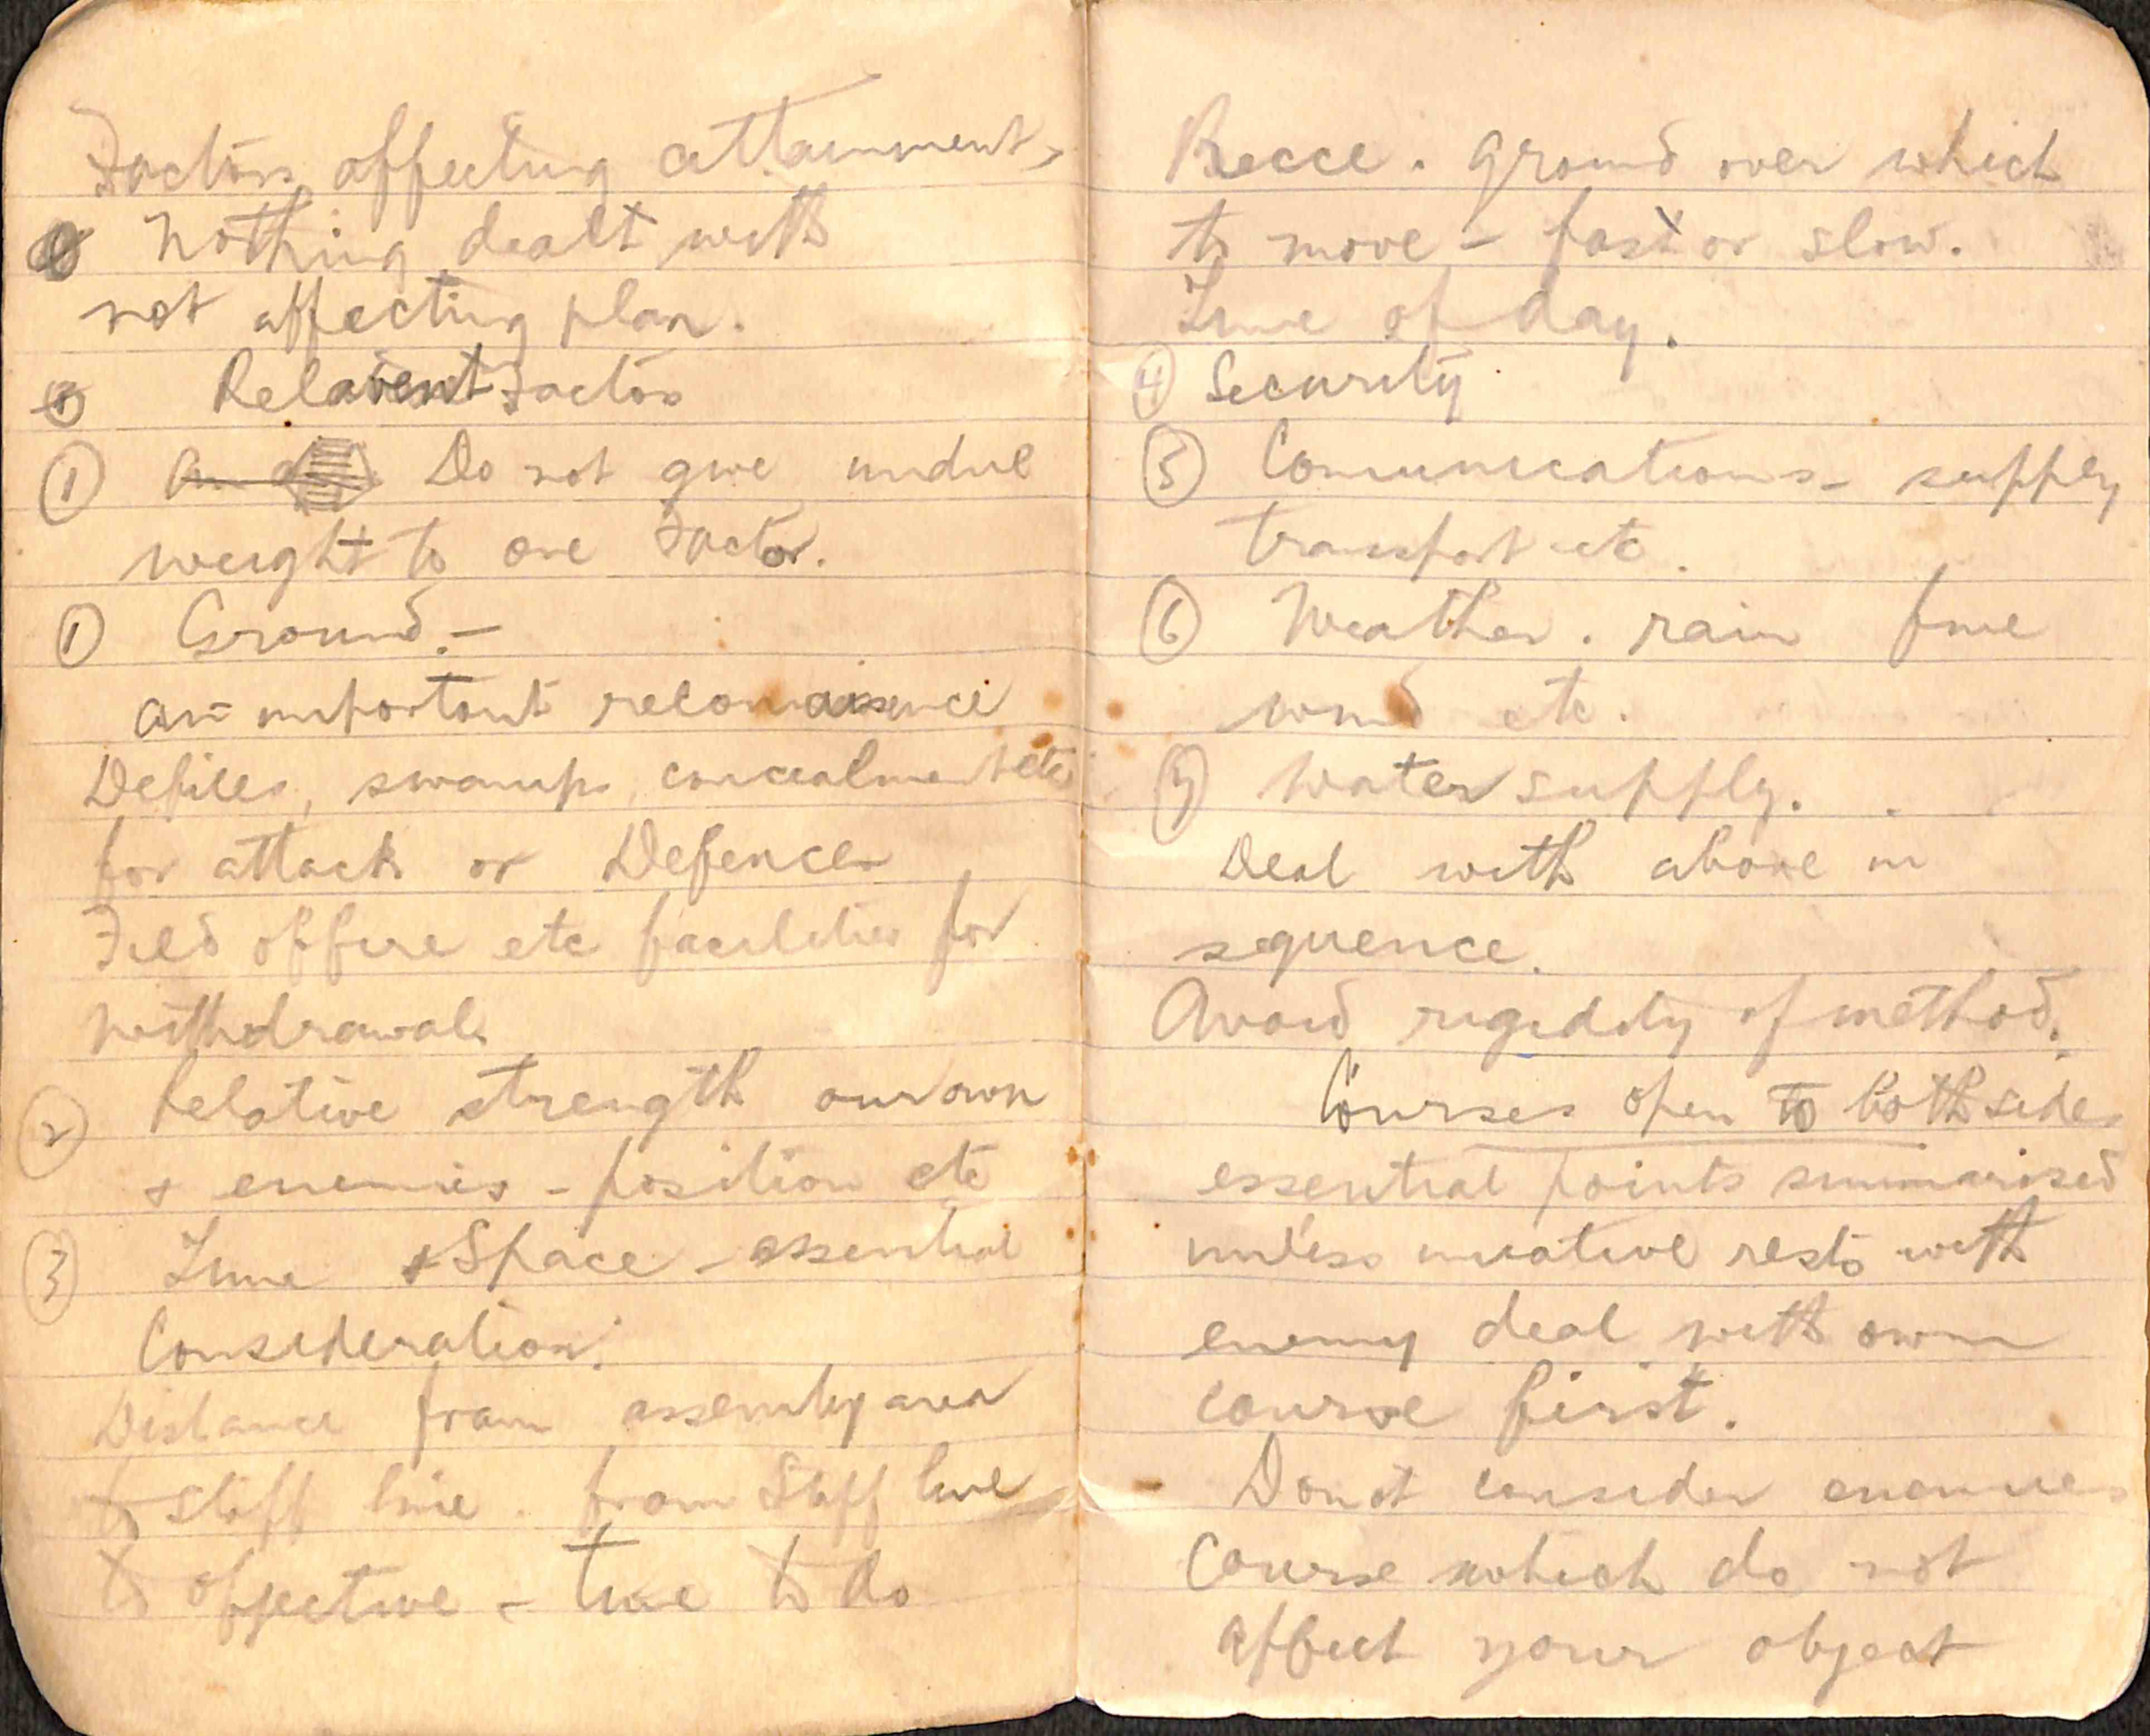 Factors affecting attainment,
Nothing dealt with
not affecting plan.
Relavent Factors
① Do not give undue
weight to one Factor.
① Ground. -
an important reconnaissance
Defiles, swamps, concealment etc
for attack or Defence
Field of fire etc facilities for
withdrawal.
② Relative strength our own
& enemies - position etc
③ Time & Space - essential
Consideration.
Distance from assembly area
to staff line. from Staff line
to objective - time to do
Recce. ground over which
to move - fast or slow.
Time of day.
④ Security
⑤ Communications - supply
transport etc.
⑥ Weather. rain fine
wind etc.
⑦ Water supply.
Deal with above in
sequence.
Avoid rigidity of method.
Courses open to both sides
essential points summarised
unless iniative rests with
enemy deal with own
course first.
Do not consider enemies
Course which do not
affect your object